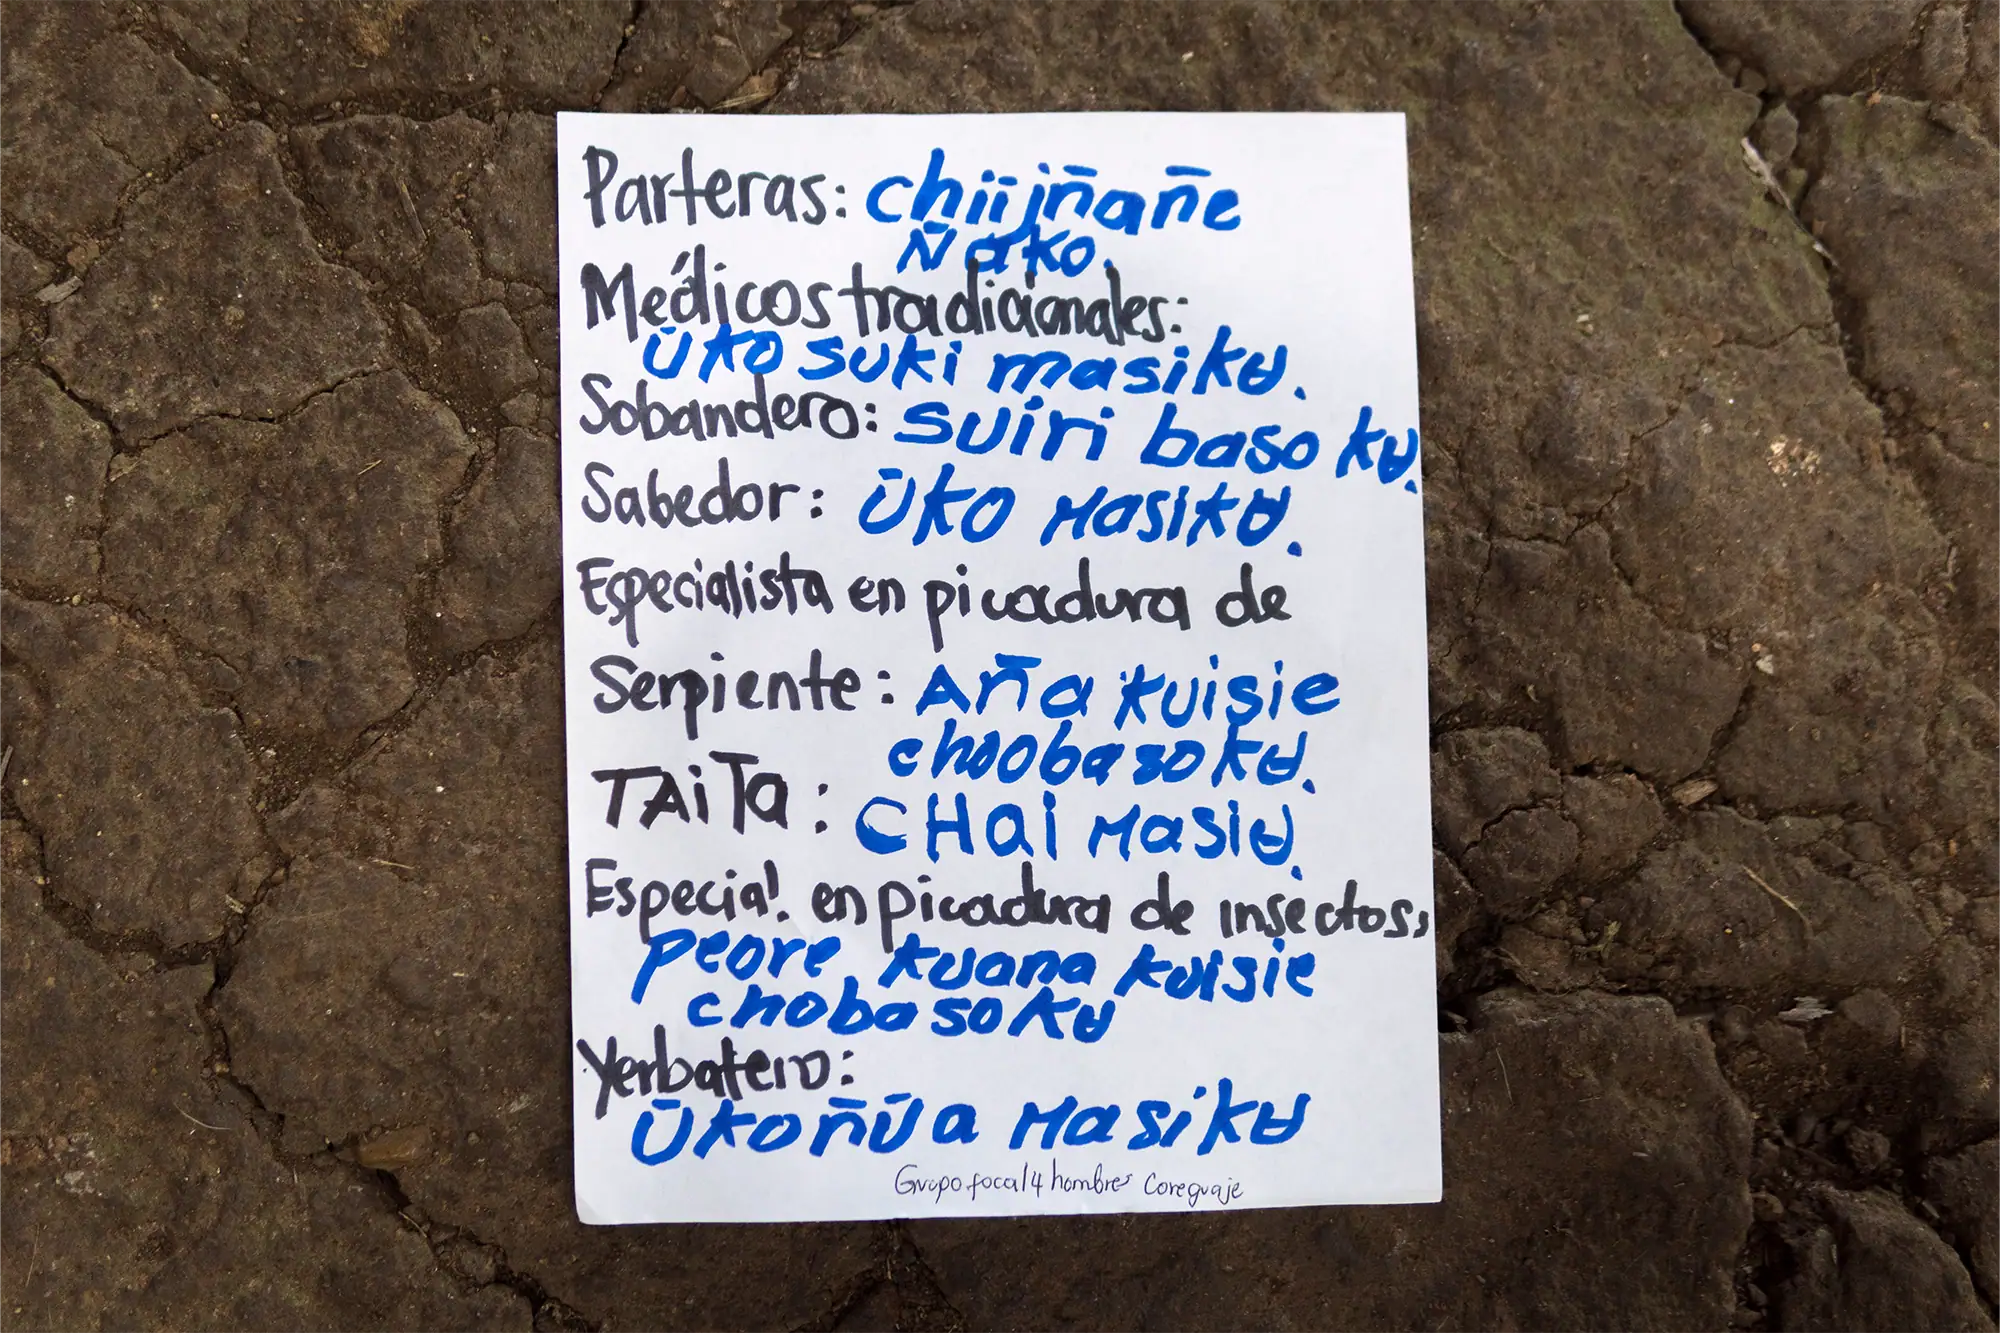 Parteras: chiijñañe
Ñako.
Médicos tradicionales:
Ūko suki masikʉ.
Sobandero: suiri baso kʉ.
Sabedor: Ūko Masikʉ.
Especialista en picadura de
Serpiente: Aña kuisie
choobasokʉ.
TAiTa: CHai Masiʉ.
Especial. en picadura de insectos,
peore kuana kuisie
chobasokʉ
Yerbatero:
Ūkoñūa Masikʉ
Grupo focal 4 hombres Coreguaje